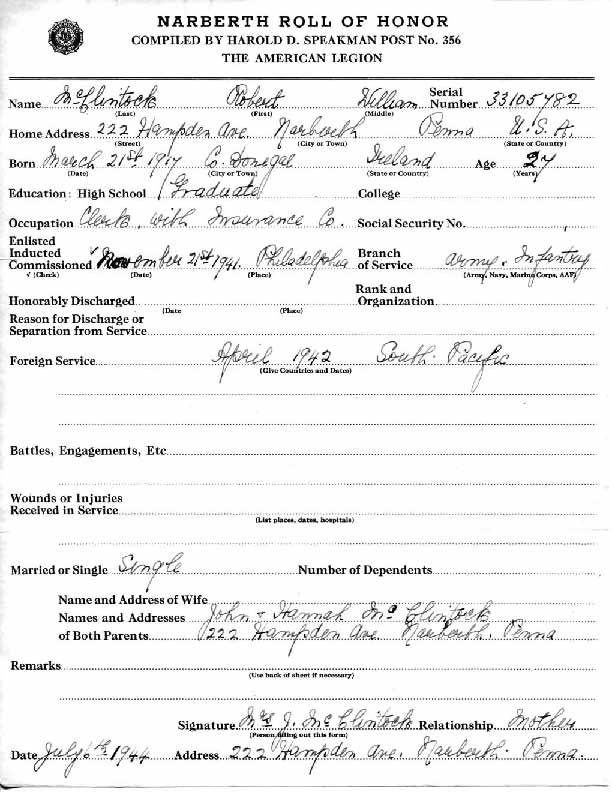 NARBERTH ROLL OF HONOR
COMPILED BY HAROLD D. SPEAKMAN POST No. 356
THE AMERICAN LEGION
Name McClintock Robert William Serial Number 33105782
(Last) (First) (Middle)
Home Address 222 Hampden Ave. Narberth Penna U.S.A.
(Street) (City or Town) (State or Country)
Born March 21st 1917 Co. Donegal Ireland Age 27
(Date) (City or Town) (State or Country) (Years)
Education: High School (Graduate) College
Occupation Clerk, with Insurance Co. Social Security No.
Enlisted
Inducted √
Commissioned November 21st 1941. Philadelphia Branch of Service Army. Infantry
√ (Check) (Date) (Place) (Army, Navy, Marine Corps, AAF)
Honorably Discharged Rank and Organization
(Date (Place)
Reason for Discharge or
Separation from Service
Foreign Service April 1942 South Pacific
(Give Countries and Dates)
Battles, Engagements, Etc
Wounds or Injuries
Received in Service
(List places, dates, hospitals)
Married or Single Single Number of Dependents
Name and Address of Wife
Names and Addresses John + Hannah McClintock
of Both Parents 222 Hampden Ave. Narberth. Penna
Remarks
(Use back of sheet if necessary)
Signature Mrs J. McClintock Relationship Mother
(Person filling out this form)
Date July 6th 1944 Address 222 Hampden Ave. Narberth. Penna.